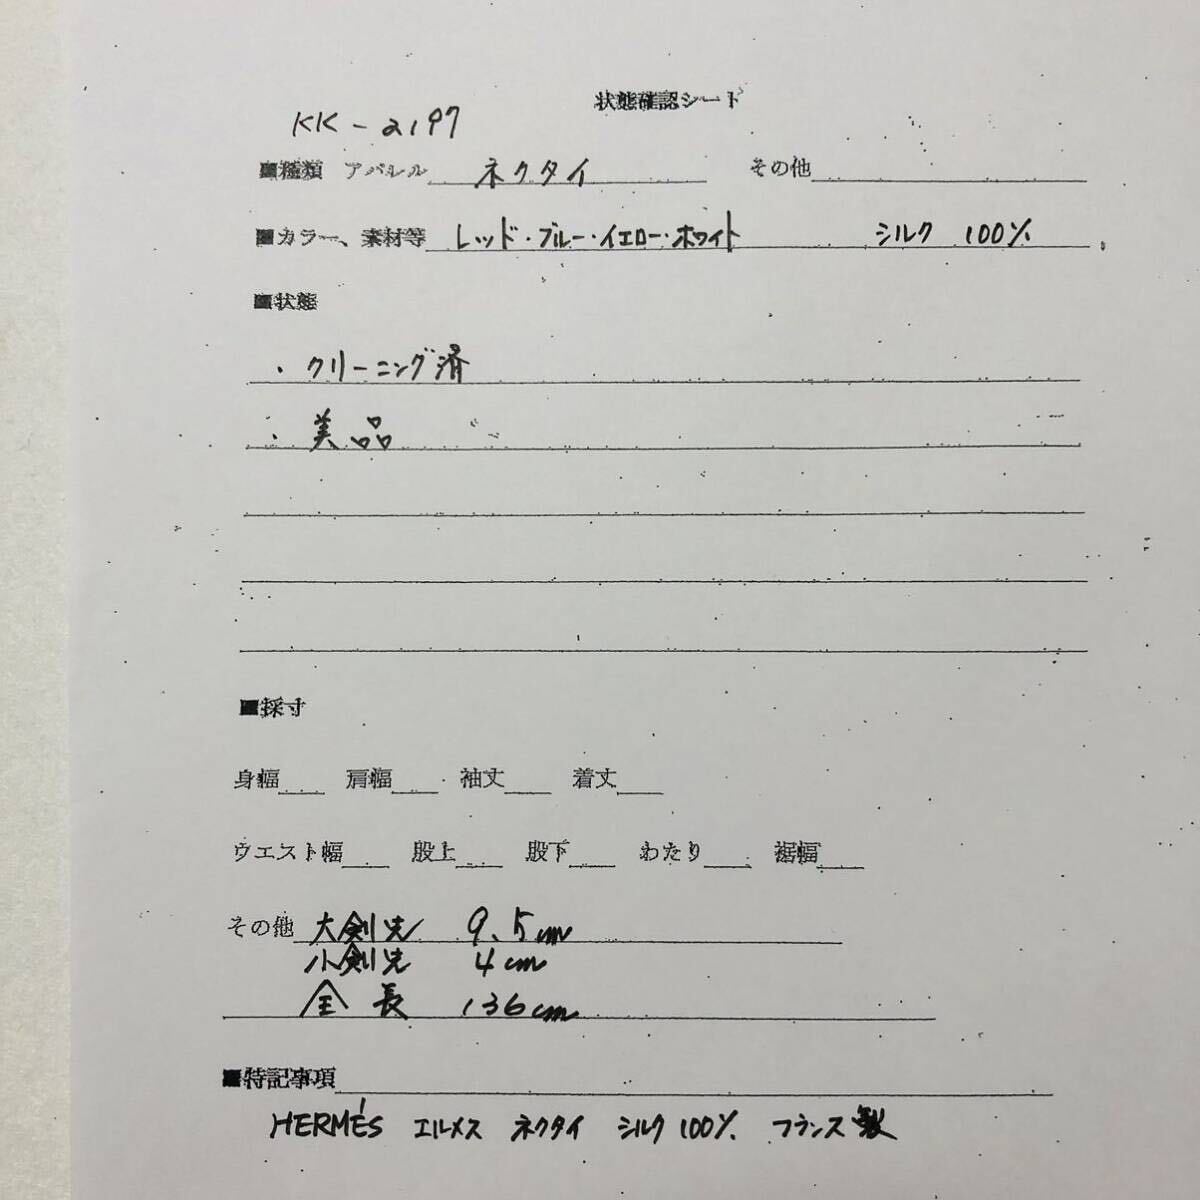 状態確認シート
KK-2197
■種類 アパレル ネクタイ その他
■カラー、素材等 レッド・ブルー・イエロー・ホワイト シルク 100%
■状態
・クリーニング済
・美品
■採寸
身幅 肩幅 袖丈 着丈
ウエスト幅 股上 股下 わたり 裾幅
その他 大剣先 9.5cm
小剣先 4cm
全長 136cm
■特記事項
HERMÉS エルメス ネクタイ シルク100% フランス製